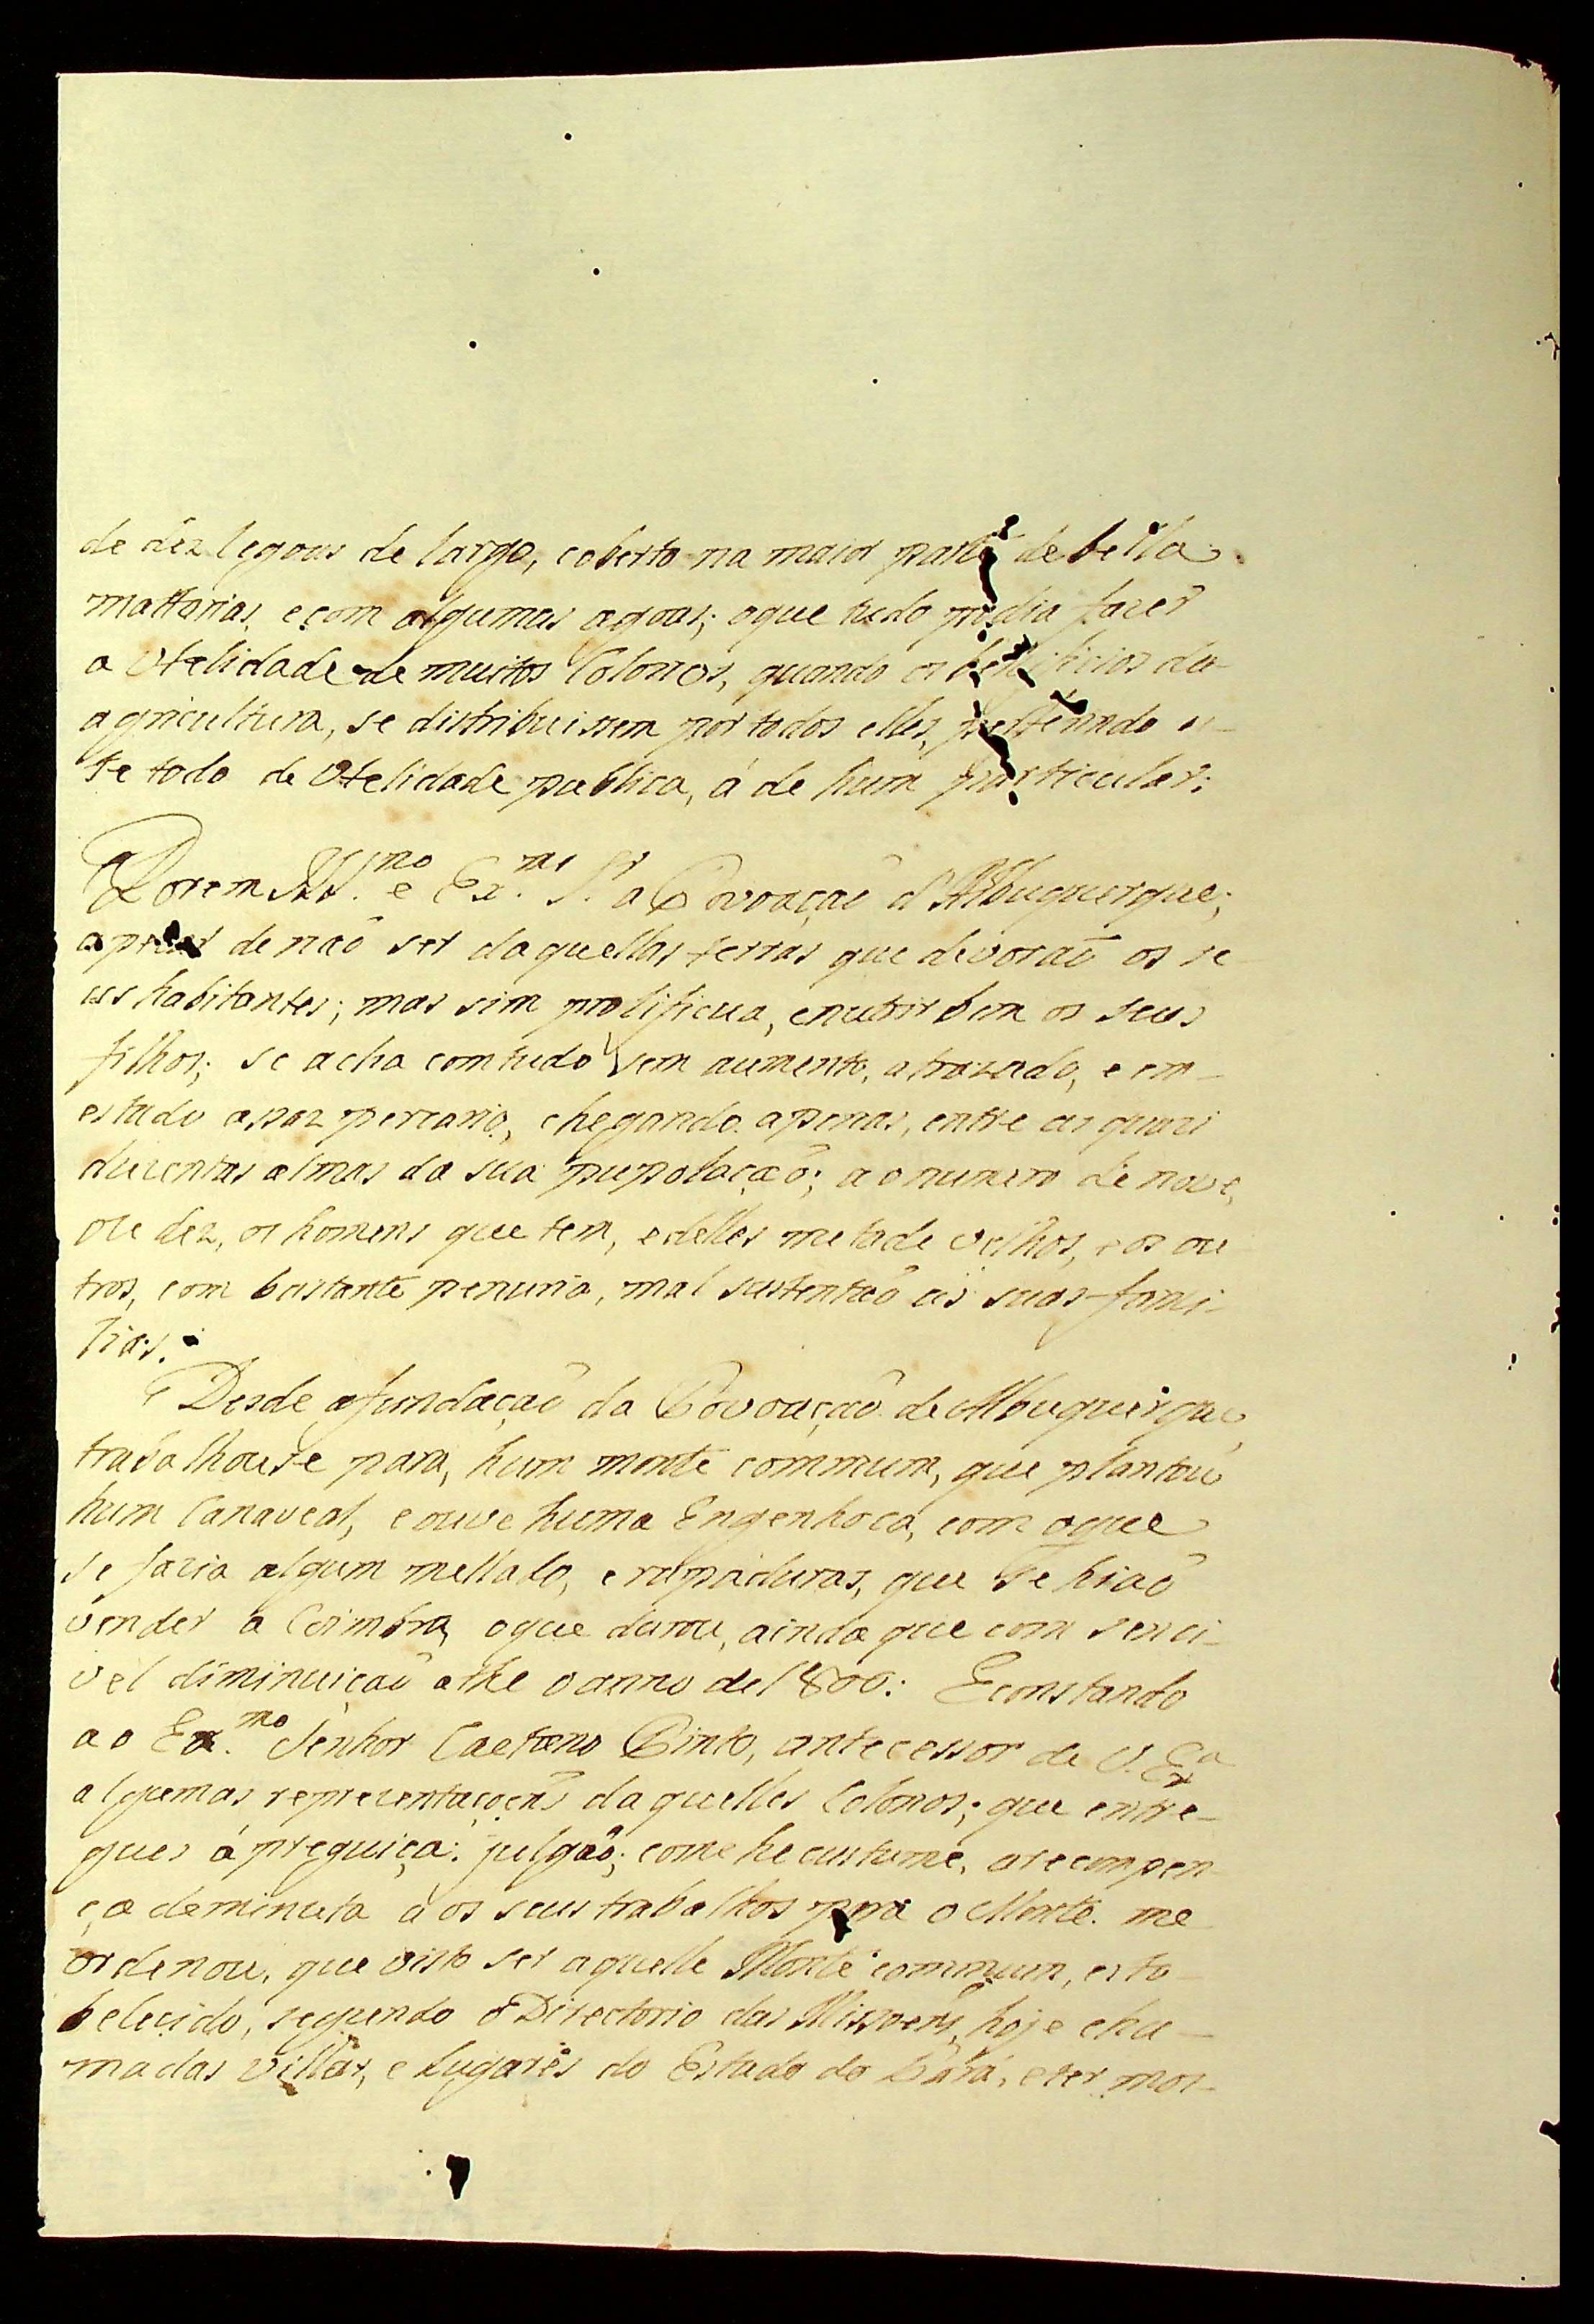 de déz legoas de largo, coberto na maior parte de bella
mattarias, e com algumas agoas; oque tudo podia fazer
a Utelidade de muitos Colonos, quando os beneficios da
agricultura, se distribuissem por todos elles, es-
te todo de Utelidade publica, á de hum particular;
Porem Ill.mo e Ex.mo S.r a Povoação d'Albuquerque;
apezar de não ser daquellas terras que devorão os se
us habitantes; mas sim prolificua, enutrir bem os seus
filhos; se acha comtudo sem aumento, atrazado, e em
estado asaz percario, chegando apenas, entre as quazi
duzentas almas da sua pupolação; ao numero de nove,
ou dez, os homens que tem, edelles metade velhos, e os ou
tros, com bastante penuria, mal sustentão as suas fami-
lias.
Desde afundação da Povoação de Albuquerque,
trabalhouse para, hum monte commum, que plantou
hum Canaveal, e ouve huma Engenhoca, com oque
se fazia algum mellado, e rapaduras, que se hião
vender a Coimbra, oque durou, ainda que com senci-
vel diminuição athe o anno de 1800: Econstando
ao Ex.mo Senhor Caetano Pinto, antecessor de V. Ex.a
algumas reprezentaçoens daquelles Colonos; que entre-
gues á preguiça: julgão; como he custume, arecompen
ça deminuta aos seus trabalhos para o Monte. me
ordenou, que visto ser aquelle Monte commum, esta-
belecido, segundo o Directorio das Missoens, hoje cha-
madas Villas, e Lugares do Estado do Pará, e ser mos-